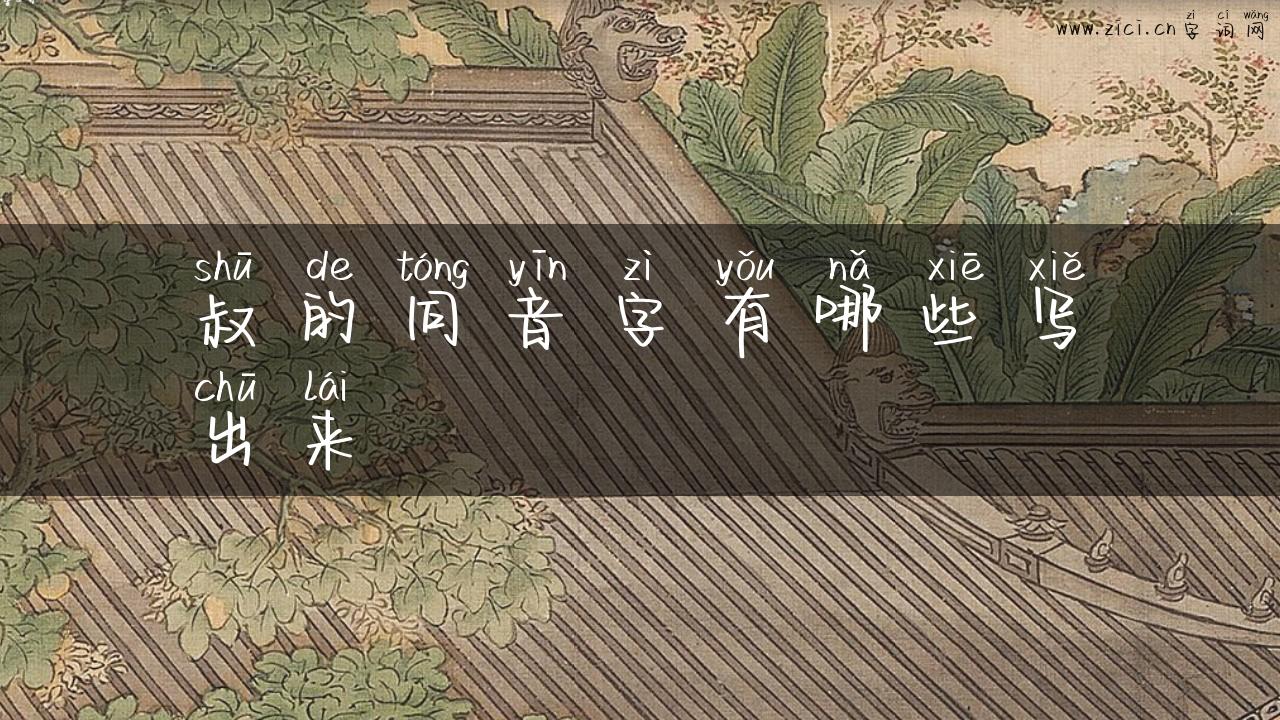 zì cí wǎng
www.zici.cn 字 词 网
shū de tóng yīn zì yǒu nǎ xiē xiě
叔 的 同 音 字 有 哪 些 写
chū lái
出 来